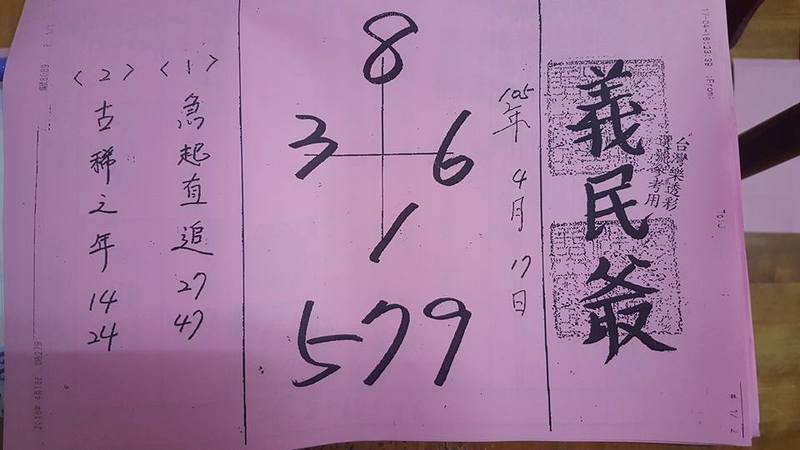 義民爺
台灣樂透彩
選號參考用
105年4月17日
8
3 6
1
579
〈1〉急起直追 27 47
〈2〉古稀之年 14 24
17-04-16;23:38 ;From:
To:J
# 1/ 2